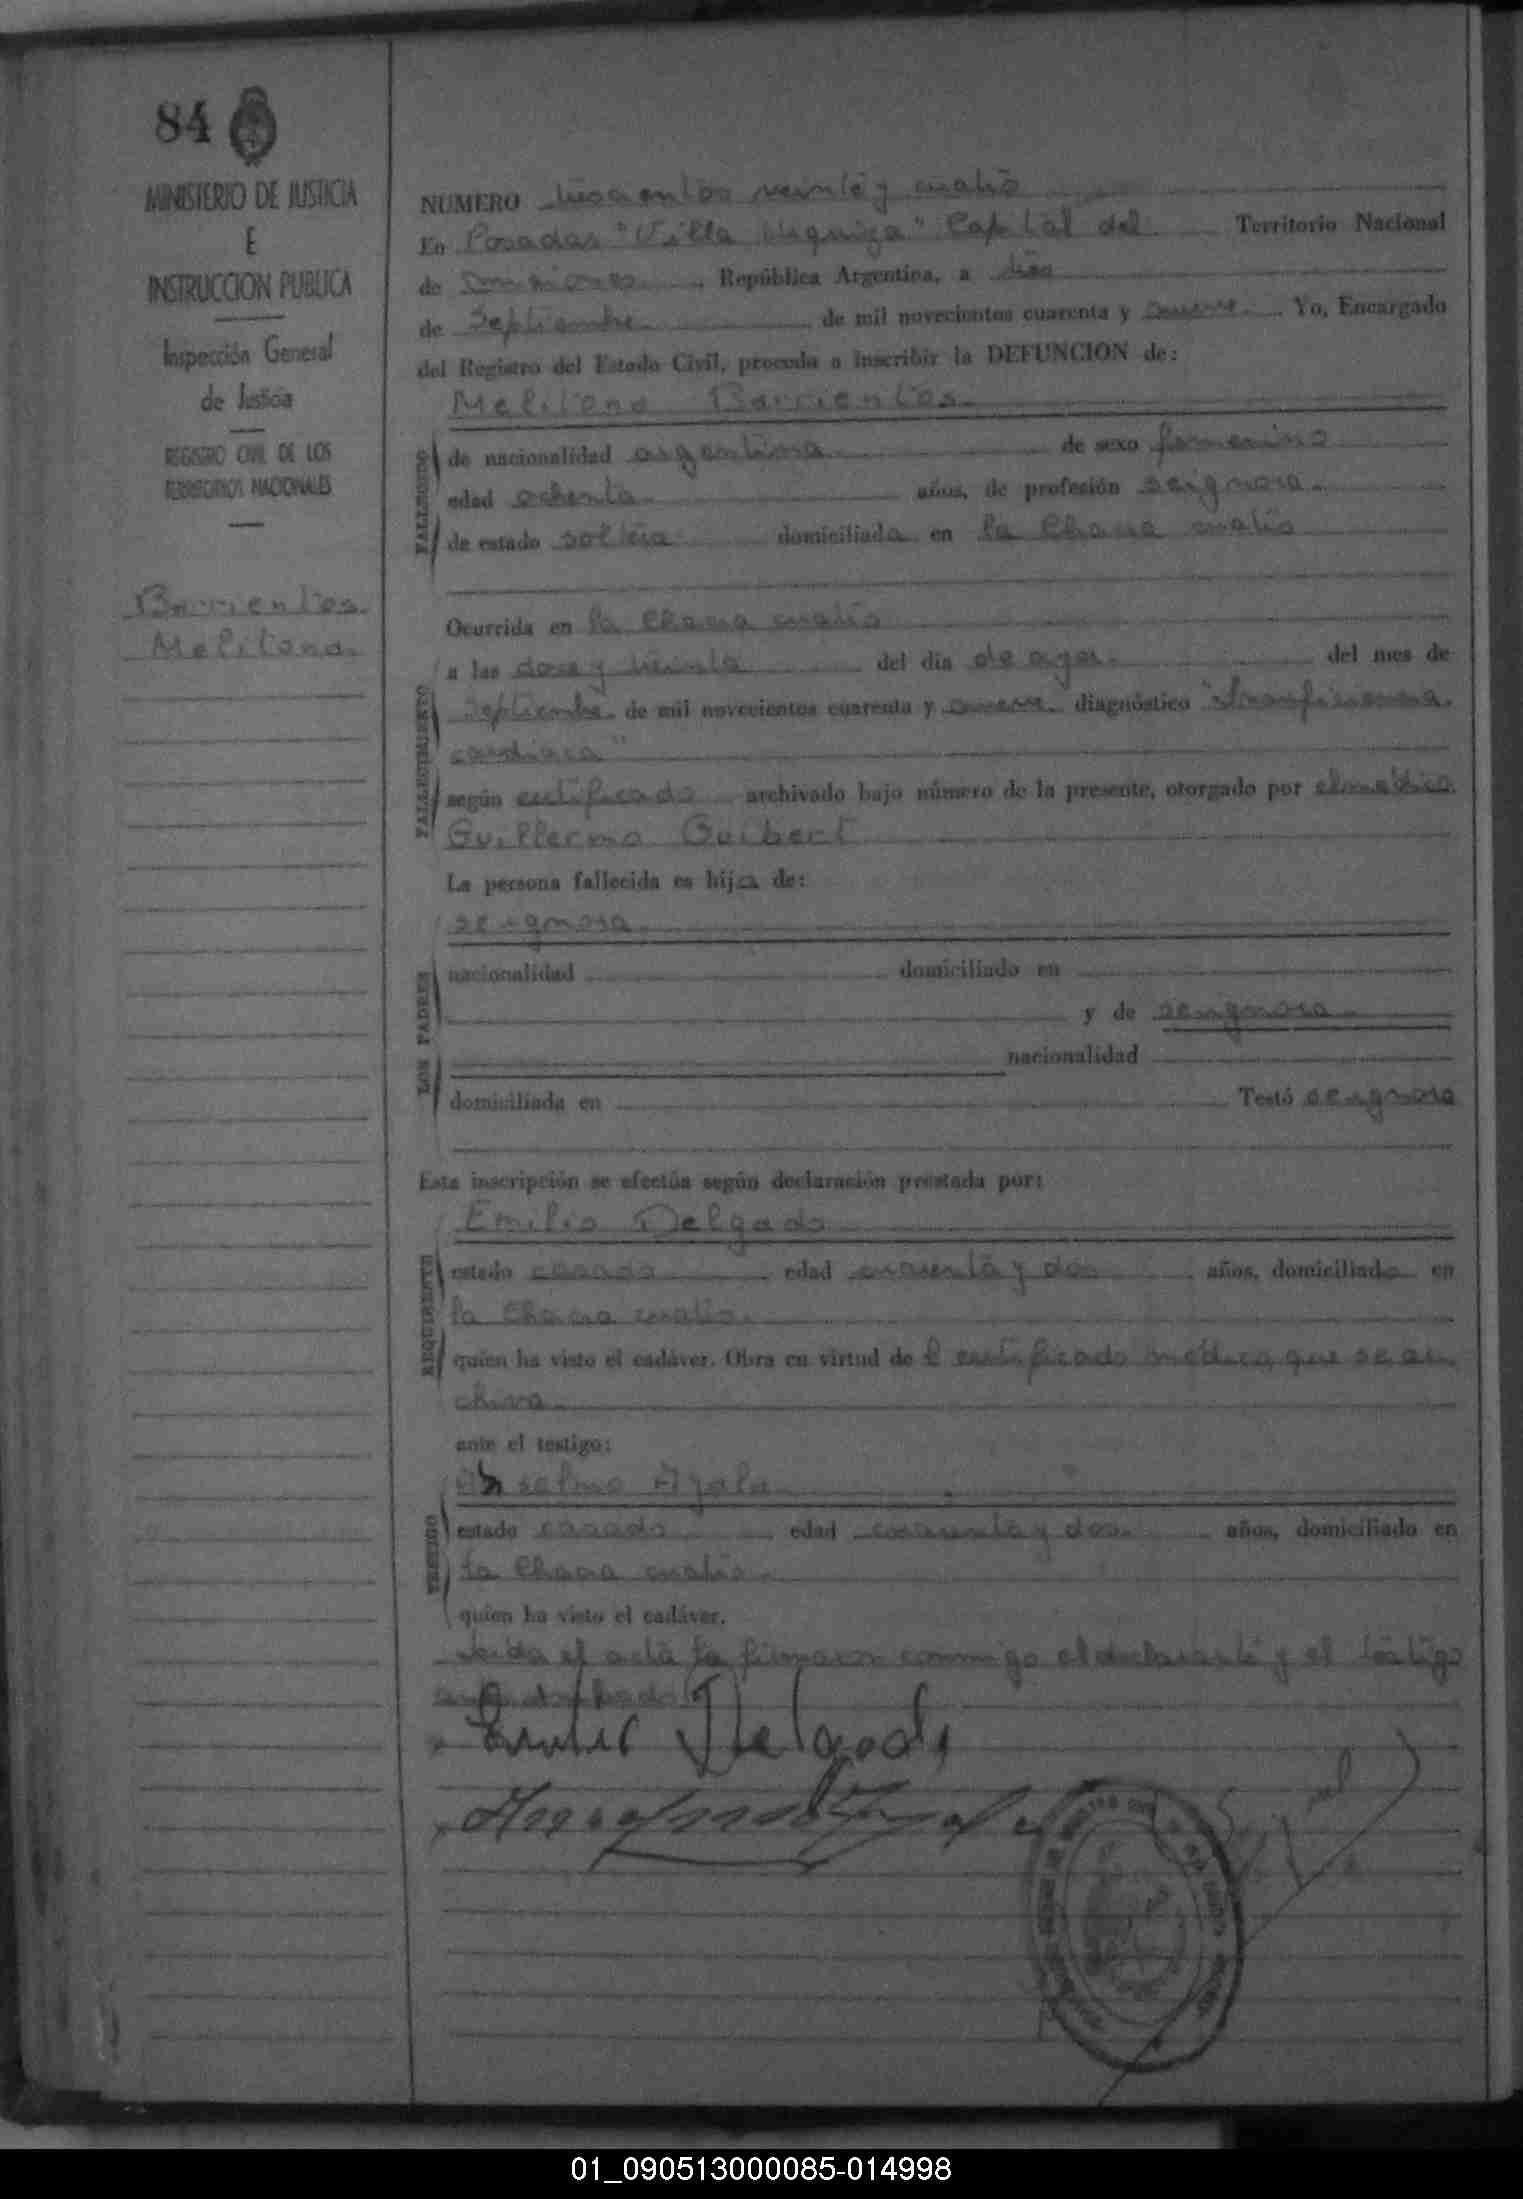 84
MINISTERIO DE JUSTICIA
E
INSTRUCCION PUBLICA
Inspección General
de Justicia
REGISTRO CIVIL DE LOS
TERRITORIOS NACIONALES
Barrientos
Melitona
NUMERO trescientos veinte y cuatro
En Posadas "Villa Urquiza" Capital del Territorio Nacional
de Misiones República Argentina, a dos
de Septiembre de mil novecientos cuarenta y nueve. Yo, Encargado
del Registro del Estado Civil, procedo a inscribir la DEFUNCION de:
Melitona Barrientos
FALLECIDO
de nacionalidad argentina de sexo femenino
edad ochenta años, de profesión se ignora
de estado soltera domiciliada en la Chacra cuatro
FALLECIMIENTO
Ocurrida en la Chacra cuatro
a las doce y treinta del día de ayer del mes de
Septiembre de mil novecientos cuarenta y nueve diagnóstico "Insuficiencia
cardiaca"
según certificado archivado bajo número de la presente, otorgado por el médico
Guillermo Guibert
La persona fallecida es hija de:
LOS PADRES
se ignora
nacionalidad domiciliado en
y de se ignora
nacionalidad
domiciliada en Testó se ignora
Esta inscripción se efectúa según declaración prestada por:
REQUIRENTE
Emilio Delgado
estado casado edad cuarenta y dos años, domiciliado en
la Chacra cuatro
quien ha visto el cadáver. Obra en virtud de l certificado médico que se ar
chiva
ante el testigo:
TESTIGO
Anselmo Ayala
estado casado edad cuarenta y dos años, domiciliado en
la Chacra cuatro
quien ha visto el cadáver.
Leida el acta la firmaron conmigo el declarante y el testigo
Emilio Delgado
Anselmo Ayala
01_090513000085-014998